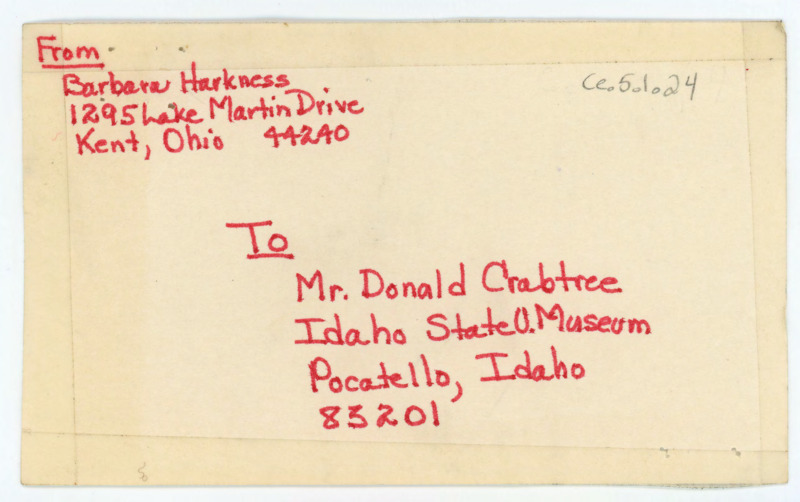 From
Barbara Harkness
1295 Lake Martin Drive
Kent, Ohio 44240
Ce.5.1.24
To
Mr. Donald Crabtree
Idaho State U. Museum
Pocatello, Idaho
83201